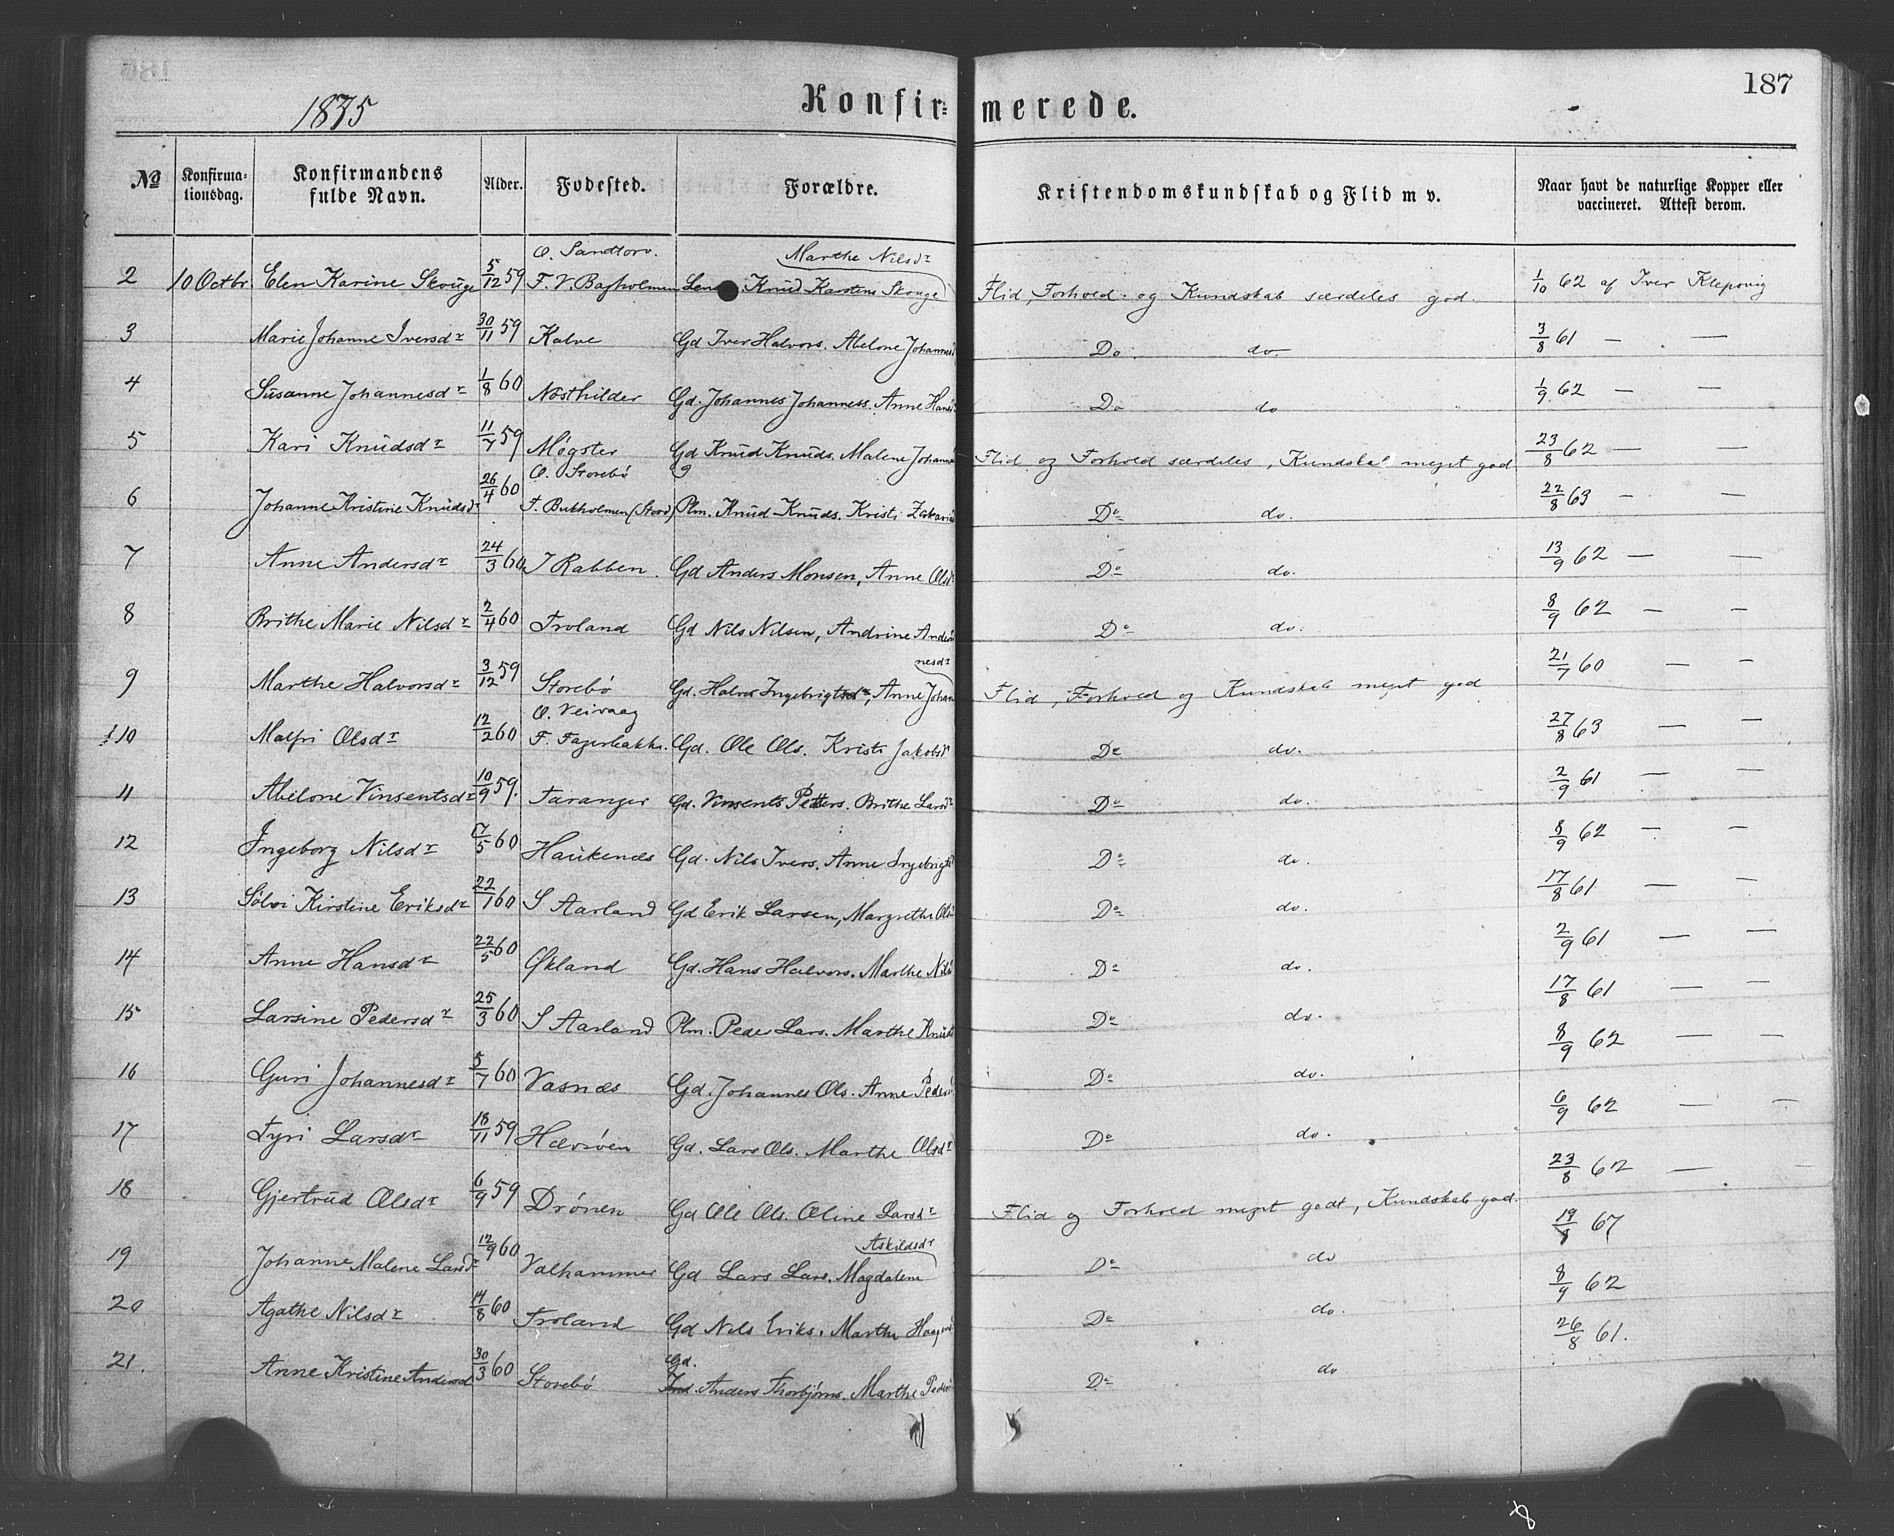 187
1875
Konfir= merede.
No Konfirma-tionsdag. Konfirmandens fulde Navn. Alder. Fødested. Forældre. Kristendomskundskab og Flid m v. Naar havt de naturlige Kopper eller vaccineret. Attest derom.
O. Sandtorv. Marthe Nilsdr
2 10 Octbr. Elen Karine Skouge 5/12 59 F. V. Bagholmen Knud Karstens Skouge Flid, Forhold og Kundskab særdeles god. 1/10 62 af Iver Klepsvig
3 Marie Johanne Iversdr 30/11 59 Kalve Gd Iver Halvors. Abelone Johannesd Do do. 3/8 61 — —
4 Susanne Johannesdr 1/8 60 Nøsthilder Gd. Johannes Johanness. Anne Hansd Do do 1/9 62 — —
5 Kari Knudsdr 11/7 59 Møgster Gd Knud Knuds. Malene Johanne Flid og Forhold særdeles, Kundskab meget god 23/8 62 — —
O. Storebø
6 Johanne Kristine Knudsdr 26/4 60 F. Bukholmen (Stord) Plm. Knud Knuds. Kristi Zakarias Do do. 22/8 63 — —
7 Anne Andersdr 24/3 60 I Rabben. Gd Anders Monsen, Anne Olsdr Do do. 13/9 62 — —
8 Brithe Marie Nilsdr 2/4 60 Troland Gd Nils Nilsen, Andrine Anders Do do. 8/9 62 — —
nesdr
9 Marthe Halvorsdr 3/12 59 Storebø Gd. Halvor Ingebrigts, Anne Johan Flid, Forhold og Kundskab meget god 21/7 60 — —
O. Veivaag
10 Malfri Olsdr 12/2 60 F. Fagerbakke. Gd. Ole Ols. Kristi Jakobsdr Do do. 27/8 63 — —
11 Abelone Vinsentsdr 10/9 59. Faranger Gd. Vinsents Petters. Brithe Larsdr Do do. 2/9 61 — —
12 Ingeborg Nilsdr 17/5 60 Haukenæs Gd. Nils Ivers. Anne Ingebrigtsd Do do. 8/9 62 — —
13 Sølvi Kirstine Eriksdr 22/1 60 S Aarland Gd Erik Larsen, Margrethe Ols Do do. 17/8 61 — —
14 Anne Hansdr 22/5 60 Økland Gd. Hans Halvors. Marthe Nils Do do. 2/9 61 — —
15 Larsine Pedersdr 25/3 60 S Aarland Plm. Peder Lars. Marthe Knuds Do do. 17/8 61 — —
16 Guri Johannesdr 5/7 60 Vasnæs Gd. Johannes Ols. Anne Peders Do do. 8/9 62 — —
17 Fyri Larsdr 18/11 59 Hævrøen Gd. Lars Ols. Marthe Olsdr Do do. 6/9 62 — —
18 Gjertrud Olsdr 6/9 59 Drønen Gd Ole Ols. Oline Larsdr Flid og Forhold meget godt, Kundskab god. 23/8 62 — —
Askildsdr
19 Johanne Malene Larsdr 12/9 60 Valhammer Gd Lars Lars. Magdalene Do do 19/8 67
20 Agathe Nilsdr 14/8 60 Troland Gd Nils Eriks. Marthe Haagens Do do. 8/9 62
Gd.
21. Anne Kristine Andersd 30/3 60 Storebø Anders Thorbjørns. Marthe Peders Do do 26/8 61.